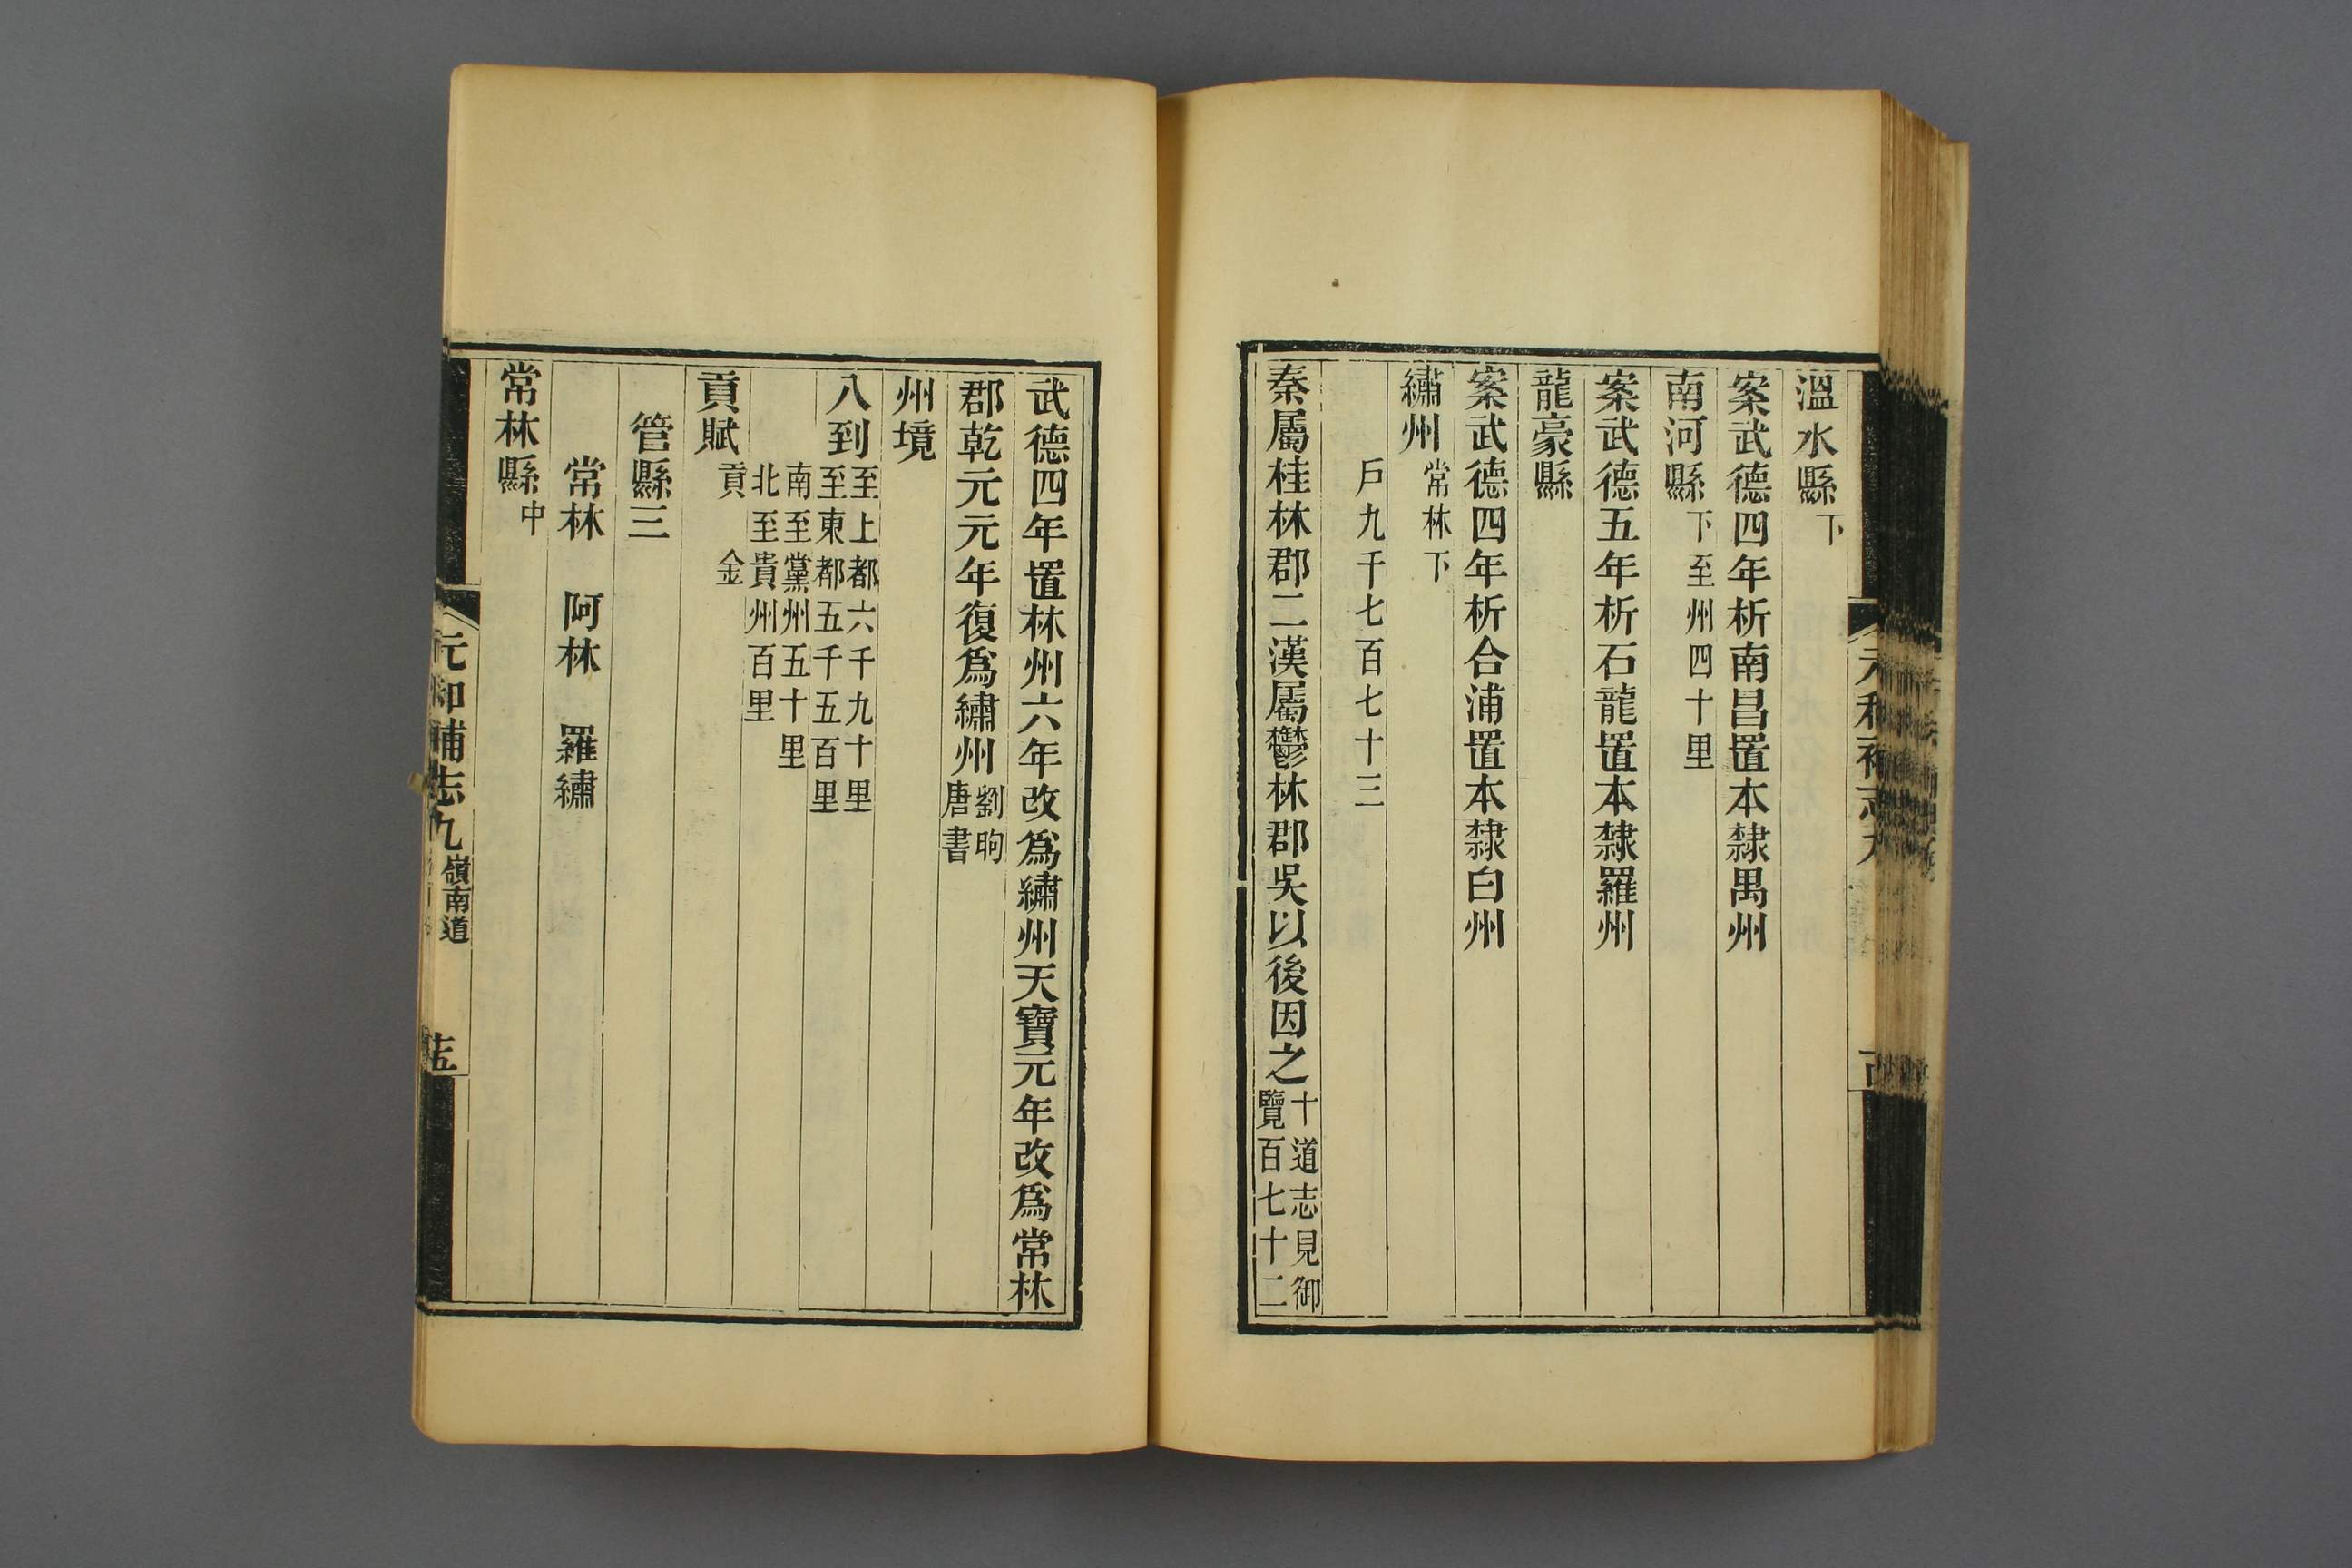 溫水縣下
案武德四年析南昌置本隸禺州
南河縣下至州四十里
案武德五年析石龍置本隸羅州
龍豪縣
案武德四年析合浦置本隸白州
繡州常林下
戶九千七百七十三
秦屬桂林郡二漢屬鬱林郡吳以後因之十道志見御
覽百七十二
武德四年置林州六年改爲繡州天寶元年改爲常林
郡乾元元年復爲繡州劉昫
唐書
州境
八到至上都六千九十里
至東都五千五百里
南至黨州五十里
北至貴州百里
貢賦貢金
管縣三
常林 阿林 羅繡
常林縣中
元和補志九 嶺南道 十五